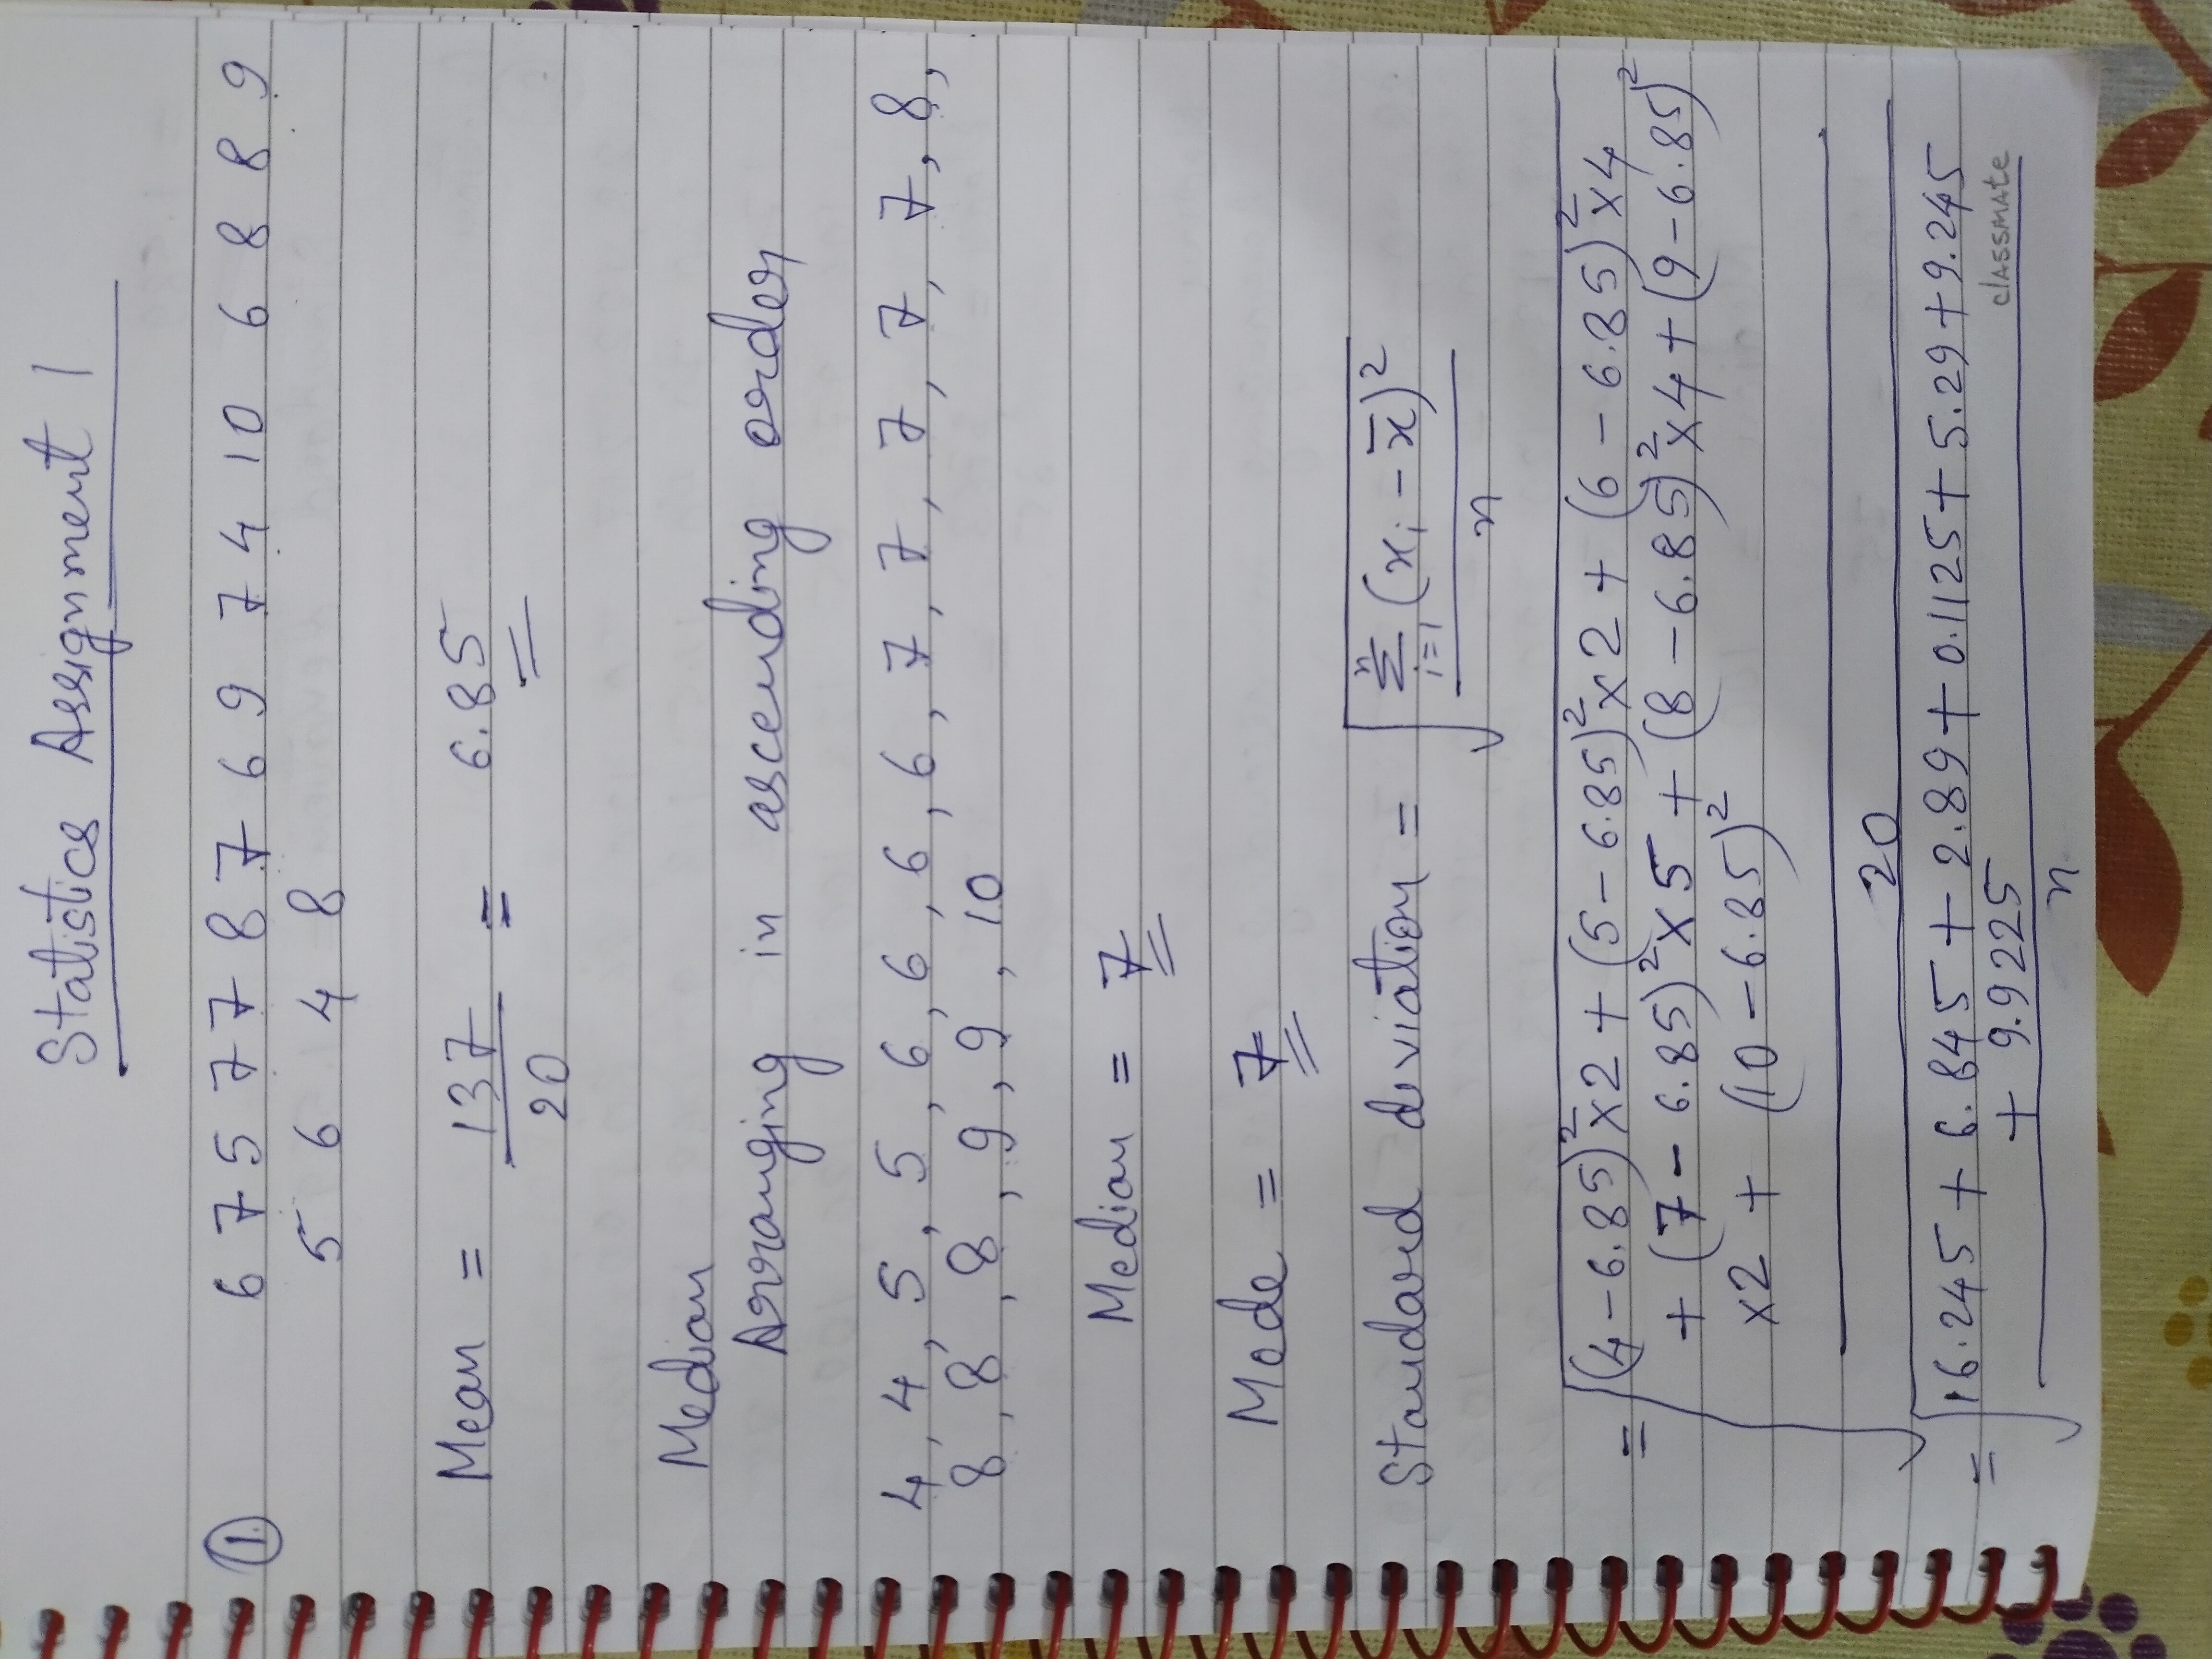 Statistics Assignment 1
1. 6 7 5 7 7 8 7 6 9 7 4 10 6 8 8 9
5 6 4 8
Mean = 137/20 = 6.85
Median
Arranging in ascending order,
4, 4, 5, 5, 6, 6, 6, 6, 7, 7, 7, 7, 7, 8,
8, 8, 8, 9, 9, 10
Median = 7
Mode = 7
Standard deviation = √(Σ_{i=1}^{n} (x_i - x̄)² / n)
= √ (4-6.85)² x2 + (5-6.85)² x2 + (6-6.85)² x4
+ (7-6.85)² x5 + (8-6.85)² x4 + (9-6.85)²
x2 + (10-6.85)²
20
= √ 16.245 + 6.845 + 2.89 + 0.1125 + 5.29 + 9.245
+ 9.9225
n
classmate